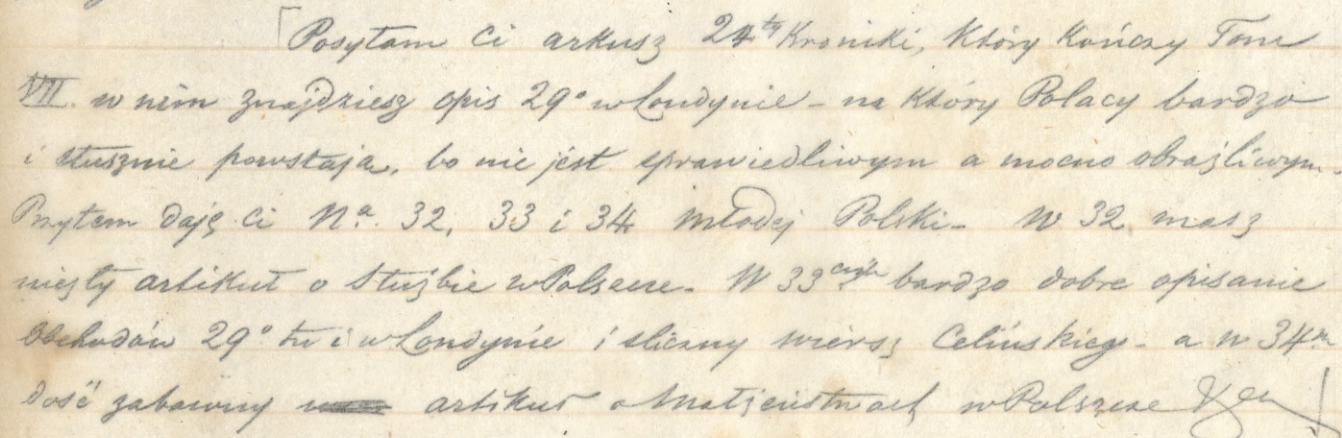 Posyłam Ci arkusz 24ty Kroniki, który kończy Tom
VII. w nim znajdziesz opis 29o w Londynie - na który Polacy bardzo
i słusznie powstają, bo nie jest sprawiedliwym a mocno obraźliwym.
Przytem daję Ci Na. 32, 33 i 34 Młodej Polski - W 32 masz
niezły artikuł o Służbie w Polscze. W 33 bardzo dobre opisanie
Obchodów 29o tu i w Londynie i śliczny wiersz Celińskiego - a w 34m
dość zabawny artikuł o Małżeństwach w Polscze